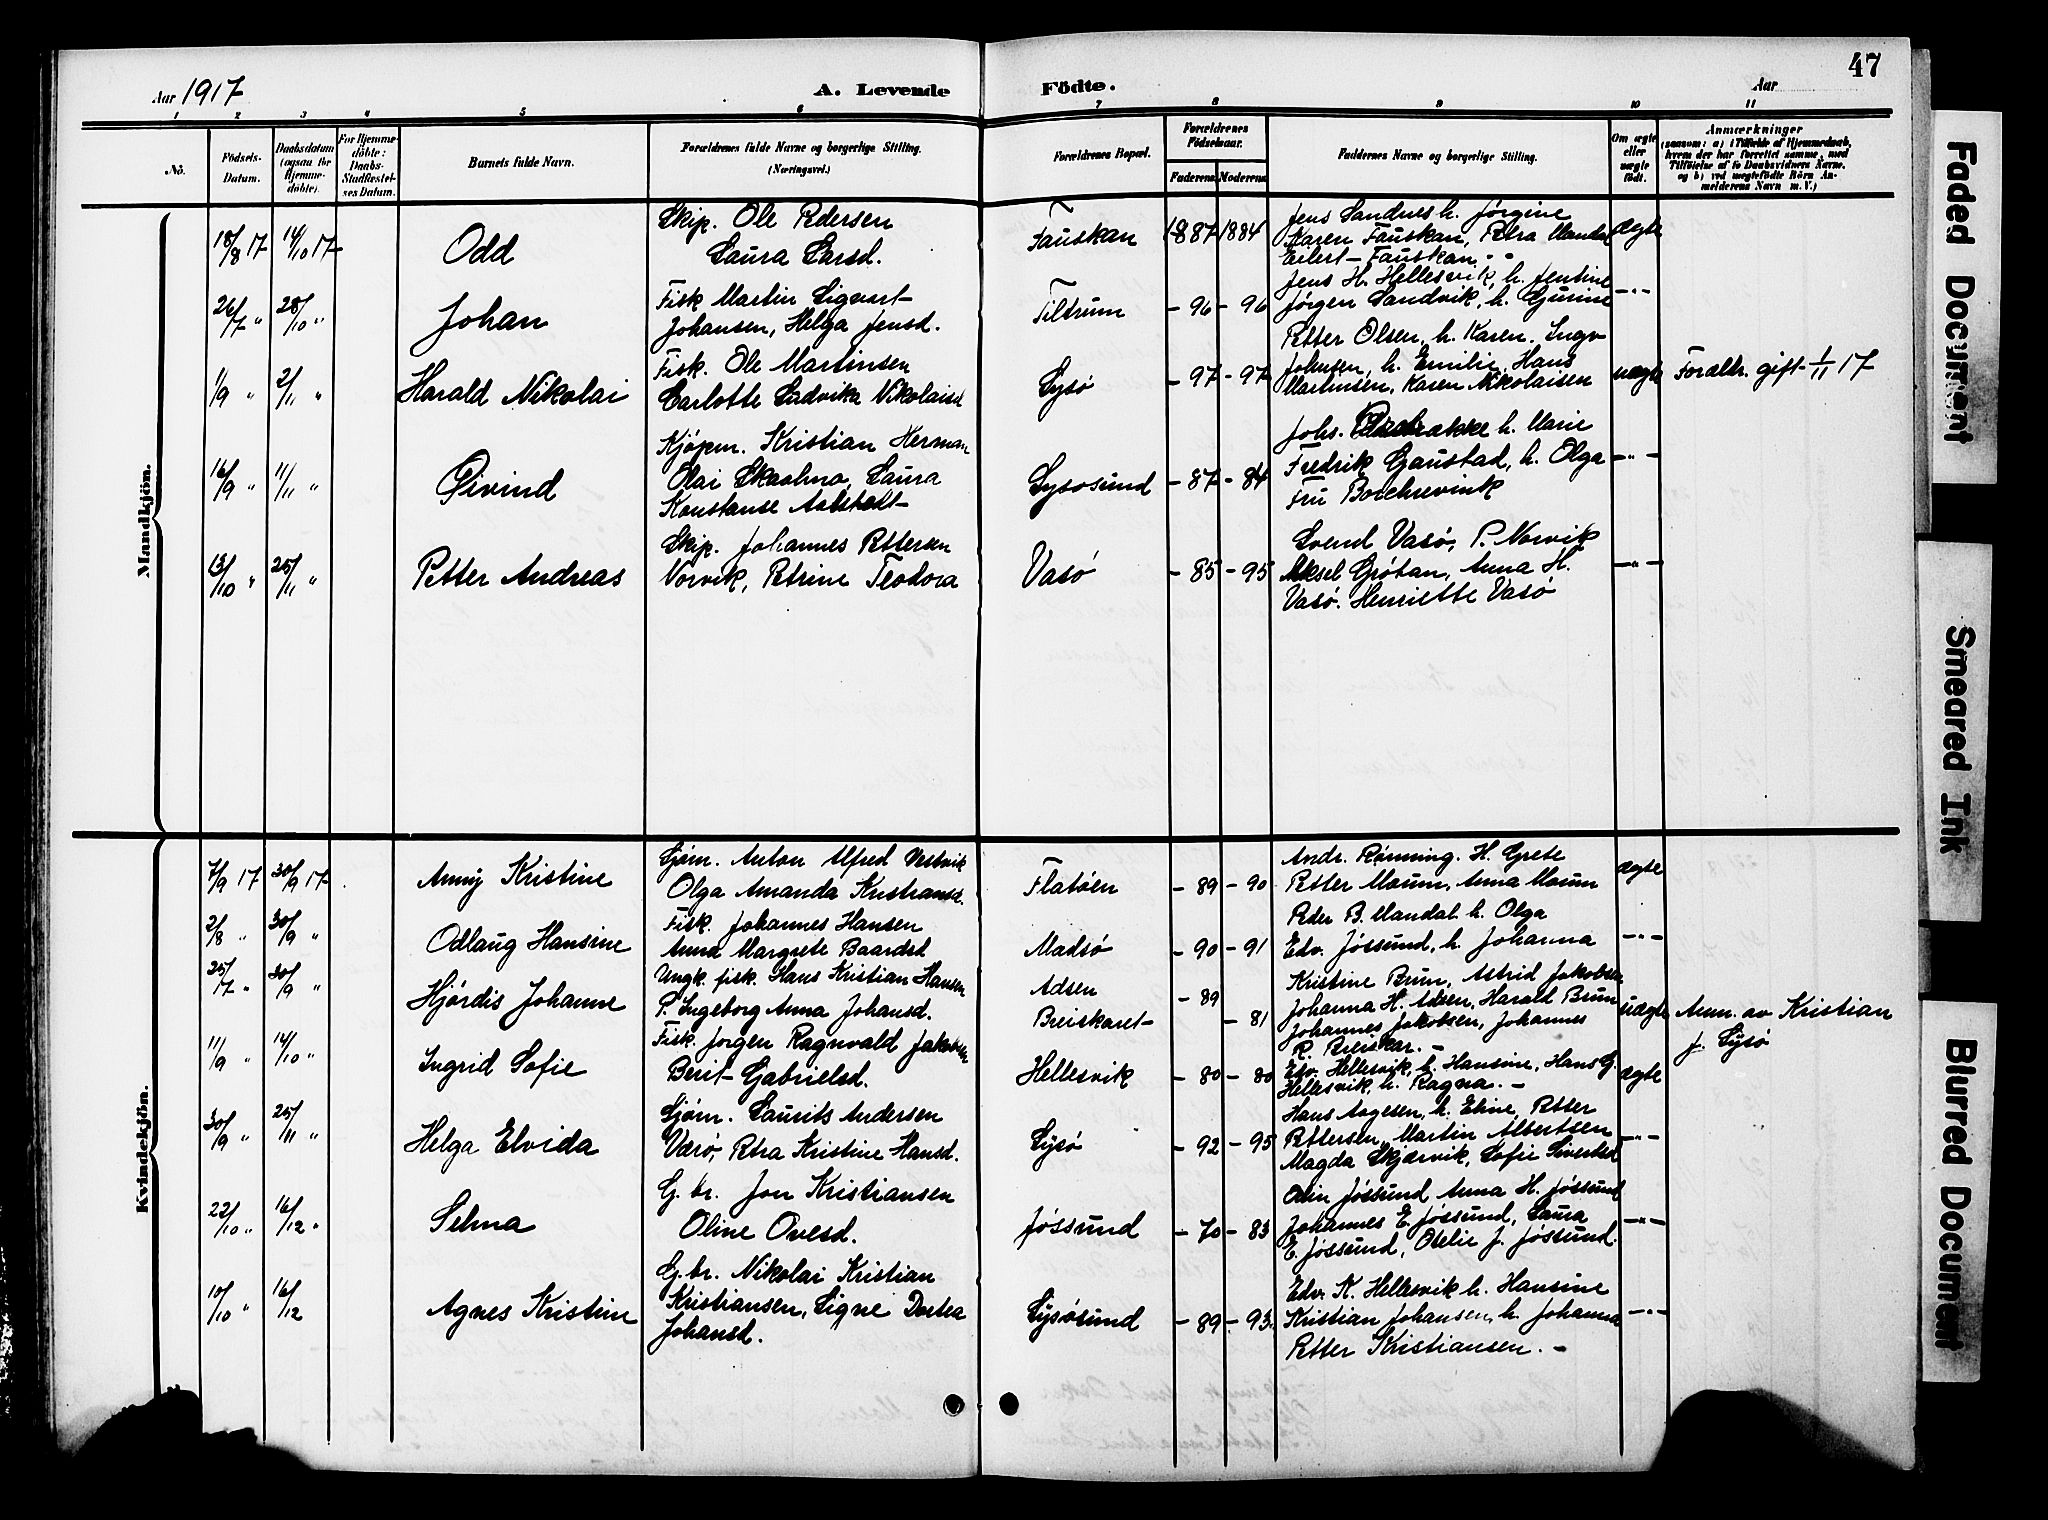 47
Aar 1917
A. Levende Födte.
Aar
1 2 3 4 5 6 7 8 9 10 11
No.
Födsels-Datum.
Daabsdatum (ogsaa for Hjemme-döbte).
For Hjemme-döbte: Daabs-Stadfæstel-ses Datum.
Barnets fulde Navn.
Forældrenes fulde Navne og borgerlige Stilling. (Næringsvei.)
Forældrenes Bopæl.
Forældrenes Födselsaar.
Faderens Moderens
Faddernes Navne og borgerlige Stilling.
Om ægte eller uægte födt.
Anmærkninger
(saasom: a) i Tilfælde af Hjemmedaab, hvem der har forrettet samme, med Tilföielse af to Daabsvidners Navne, og b) ved uægtefödte Börn An-melderens Navn m. V.)
Mandkjön.
18/8 17 14/10 17 Odd
Skip. Ole Pedersen
Laura Larsd.
Fauskan 1887 1884
Jens Sandnes h. Jørgine
Karen Fauskan, Petra Mandal
Eilert Fauskan
ægte
26/7 " 28/10 " Johan
Fisk Martin Sigvart
Johansen, Helga Jensd.
Tiltrum - 96 - 96
Jens H. Hellesvik, h. Jentine
Jørgen Sandvik, h. Gurine
Petter Olsen, h. Karen. Ingv
- " -
1/9 " 2/11 " Harald Nikolai
Fisk. Ole Martinsen
Carlotte Ludvika Nikolaisd
Lysø - 97 - 97
Johnsen, h. Emilie, Hans
Martinsen, Karen Nikolaisen
uægte Forældr. gift 1/11 17
16/9 " 11/11 " Øivind
Kjøpm. Kristian Herman
Olai Skaalmo, Laura
Konstanse Aalstedt
Lysøsund - 87 - 84
Johs. h. Marie
Fredrik Gaustad, h. Olga
Fru Borchrevink
- " -
13/10 " 25/11 " Petter Andreas
Skip. Johannes Pettersen
Norvik, Petrine Teodora
Vasø - 85 - 95
Svend Vasø, P. Norvik
Aksel Grøtan, Anna H.
Vasø. Henriette Vasø
- " -
Kvindekjön.
7/9 17 30/9 17 Anny Kristine
Sjøm. Anton Alfred Vestvik
Olga Amanda Kristiansd.
Flatøen - 89 - 90
Andr. Rønning. H. Grete
Petter Maum, Anna Maum
ægte
2/8 " 30/9 " Odlaug Hansine
Fisk. Johannes Hansen
Anna Margrete Baardsd
Madsø - 90 - 91
Peder B. Mandal h. Olga
Edv. Jøssund, h. Johanna
- " -
25/7 " 30/9 " Hjørdis Johanne
Ungk. fisk. Hans Kristian Hansen
P. Ingeborg Anna Johansd.
Adsen
Breiskaret
- 89
- 81
Kristine Brun, Astrid Jakobsen
Johanna H. Adsen, Harald Brun
Johannes Jakobsen, Johannes
R. Breiskar. -
uægte Anm. av Kristian
J. Lysø
11/9 " 14/10 " Ingrid Sofie
Fisk. Jørgen Ragnvald Jakobsen
Berit Gabrielsd.
Hellesvik - 80 - 80
Edv. Hellesvik, h. Hansine, Hans G.
Hellesvik, h. Ragna. -
ægte
30/9 " 25/11 " Helga Elvida
Sjøm. Laurits Andersen
Værø, Petra Kristine Hansd.
Lysø - 92 - 95
Hans Aagesen, h. Eline, Petter
Pettersen, Martin Albertsen
Magda Skjærvik, Sofie Sivertsd
- " -
22/10 " 16/12 " Selma
G. br. Jon Kristiansen
Oline Ovesd.
Jøssund - 70 - 83
Odin Jøssund Anna H. Jøssund
Johannes E. Jøssund, Laura
E. Jøssund, Otelie J. Jøssund
- " -
10/10 " 16/12 Agnes Kristine
G. br. Nikolai Kristian
Kristiansen, Signe Dortea
Johansd.
Lysøsund - 89 - 93
Edv. K. Hellesvik h. Hansine
Kristian Johansen, h. Johanna
Petter Kristiansen. -
- " -
Faded Document
Smeared Ink
Blurred Document